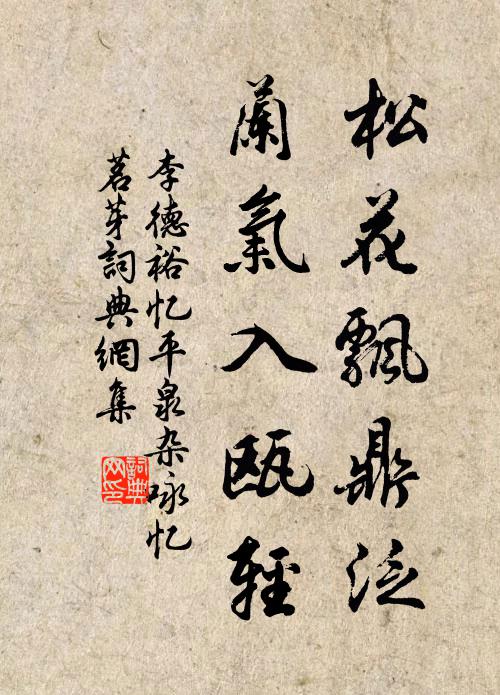 松花飄鼎泛
蘭氣入甌輕
李德裕忆平泉杂咏忆
茗芽詞典網集
詞典网印